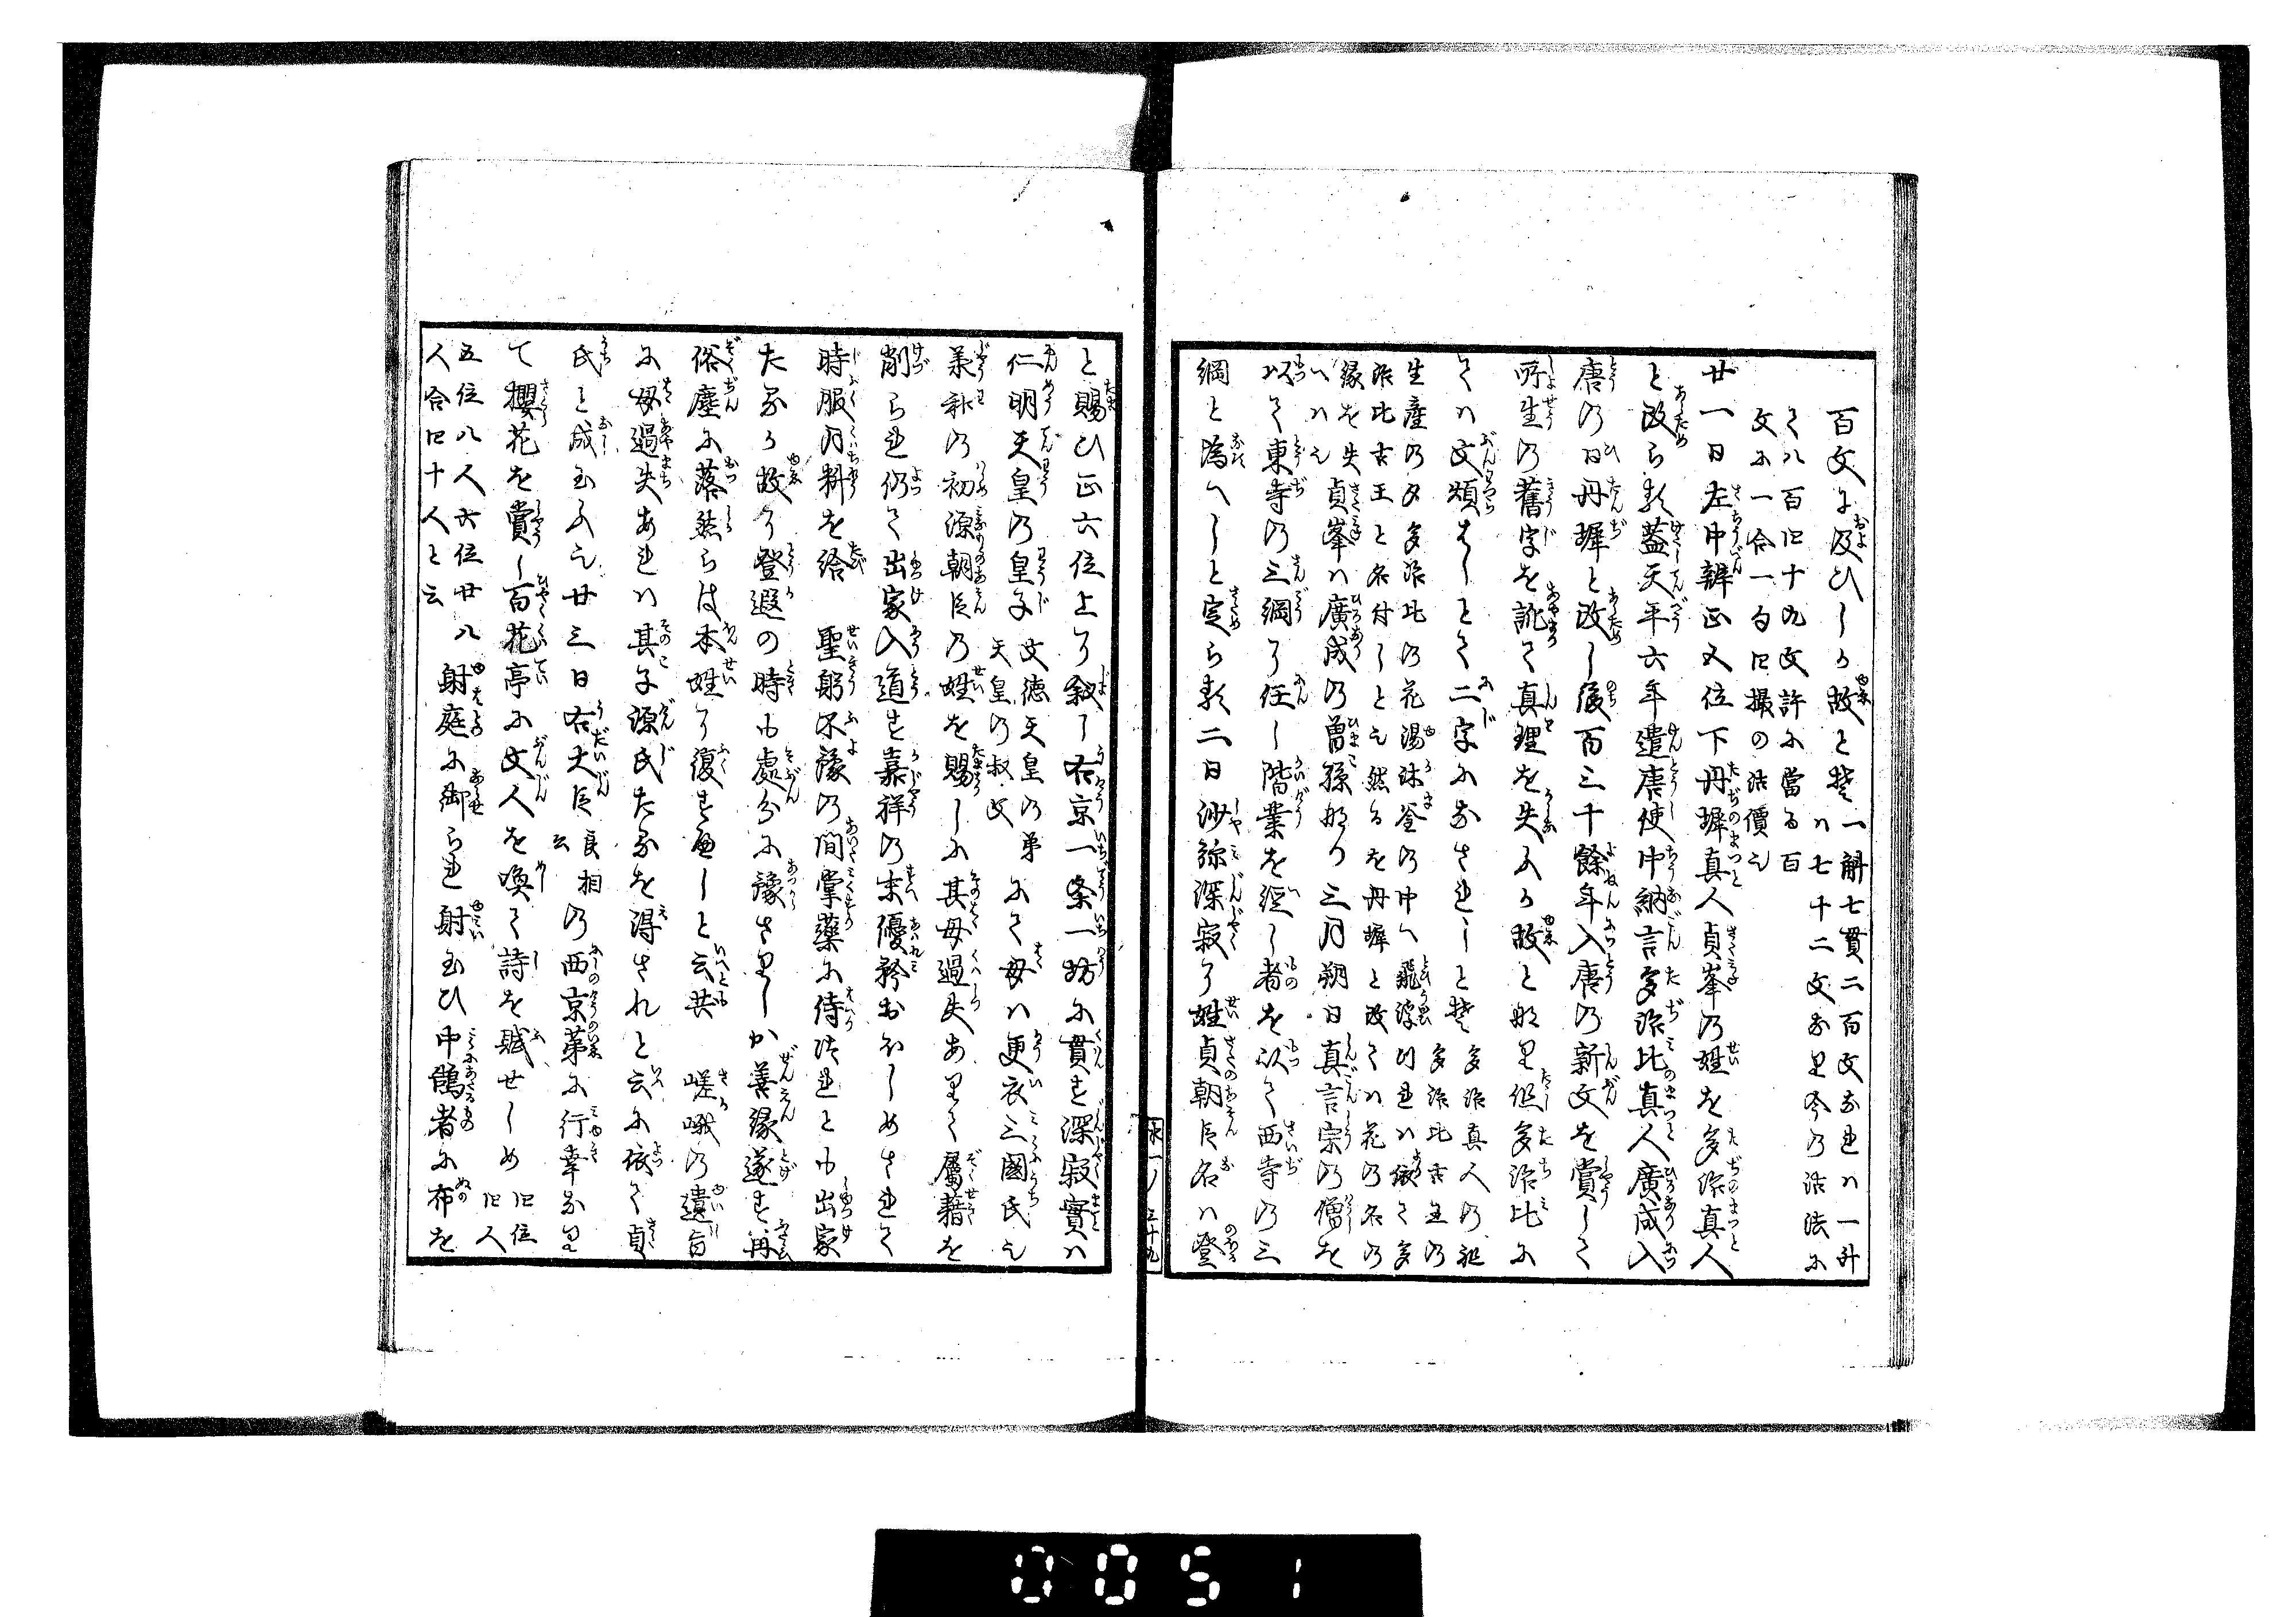 百文に及ひしか故と焚一斛七貫二百文なれハ一升
ハ七十二文なり今の沽法に
てハ百四十九文許に當る百
文に一合一勺四撮の沽價也
廿一日左中辨正五位下丹墀真人貞峯の姓を多治真人
と改らる蓋天平六年遣唐使中納言多治比真人廣成入
唐の日丹墀と改し後百三十餘年入唐の新文を賞して
所生の舊字を訛て真理を失ふか故と也但多治比に
てハ文煩はしとて二字になされしと焚多治真人の祖多治比古王の
生産の夕多治比の花湯沐釜の中へ飛浮けれハ依て多
治比古王と名付しと也然るを丹墀と改てハ花の名の
縁を失
へハ也貞峯ハ廣成の曽孫也〇三月朔日真言宗の僧を
以て東寺の三綱に任し階業を經し者を以て西寺の三
綱と為へしと定らる二日沙弥深寂に姓貞朝臣名ハ登
と賜ひ正六位上に叙し右京一条一坊に貫す深寂實ハ
仁明天皇の皇子文徳天皇の弟天皇の叔父にて母ハ更衣三國氏也
承和の初源朝臣の姓を賜しに其母過失ありて屬藉を
削られ仍て出家入道す嘉祥の末優矜おほしめされて
時服月料を給 聖躬不豫の間掌藥に侍けれとも出家
たるか故に登遐の時も處分に豫さりしか善縁遂す再
俗塵に落然らは本姓に復す画しと云共 嵯峨の遺旨
に母過失あれハ其子源氏たるを得されと云に依て貞
氏と成玉ふ也廿三日右大臣良相云の西京第に行幸なり
て櫻花を賞し百花亭に文人を喚て詩を賦せしめ四位四人
五位八人六位廿八
人合四十人と云射庭に御られ射玉ひ中鵠者に布を
永一ノ五十九
0051